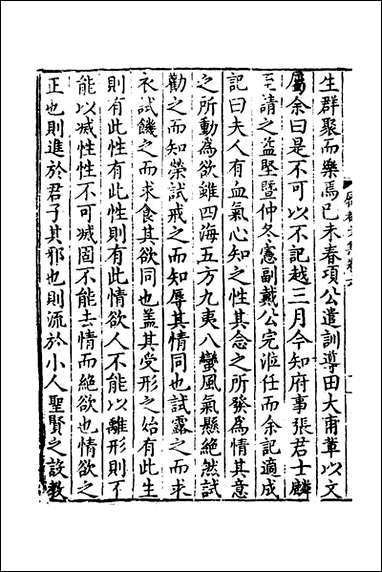 生群聚而樂焉已未春項公遣訓導田大甫軰以文
屬余曰是不可以不記越三月今知府事張君士麟
至請之益堅暨仲冬憲副戴公完涖任而余記適成
記曰夫人有血氣心知之性其念之所發為情其意
之所動為欲雖四海五方九夷八蠻風氣懸絕然試
勸之而知榮試戒之而知辱其情同也試露之而求
衣試饑之而求食其欲同也盖其受形之始有此生
則有此性有此性則有此情欲人不能以離形則不
能以滅性性不可滅固不能去情而絕欲也情欲之
正也則進於君子其邪也則流於小人聖賢之設教